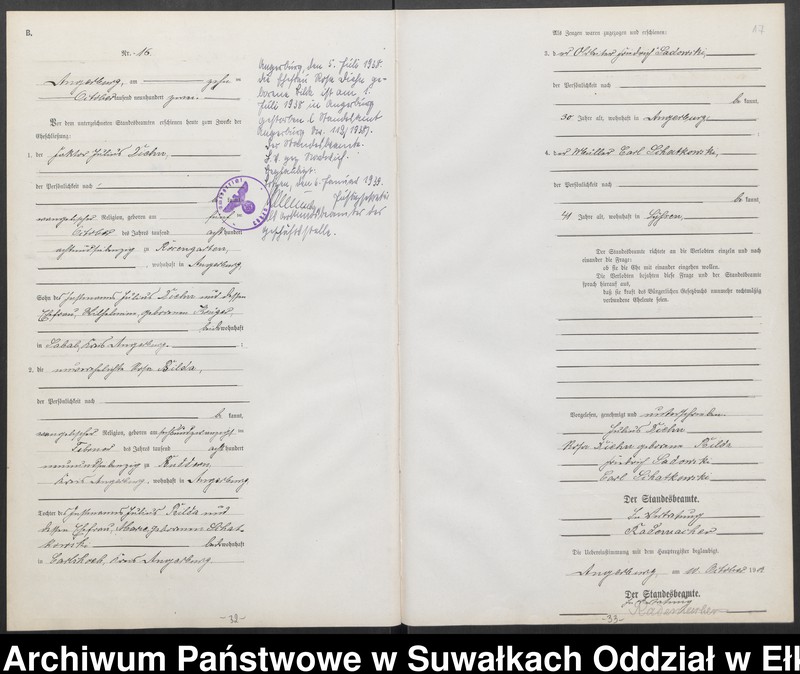 B.
Nr. 16.
Angerburg, am zehn
October tausend neunhundert zwei.
Vor dem unterzeichneten Standesbeamten erschienen heute zum Zwecke der
Eheschließung:
1. der Faktor Julius Diehn,
der Persönlichkeit nach
be kannt,
evangelischer Religion, geboren am fünf
October des Jahres tausend achthundert
achtundsiebenzig zu Rosengarten,
, wohnhaft in Angerburg,
Sohn des Julius Diehn und dessen
Ehefrau, Wilhelmine, geborenen
beide wohnhaft
in Kreis Angerburg. ;
2. die unverehelichte Rosa Kilda,
der Persönlichkeit nach
be kannt,
evangelischer Religion, geboren am
Februar des Jahres tausend achthundert
neunundsiebenzig zu Kutten,
Kreis Angerburg, wohnhaft in Angerburg
Tochter des Julius Kilda und
dessen Ehefrau, geborenen Schat-
kowski beide wohnhaft
in Kreis Angerburg.
- 32 -
Angerburg, den 5. Juli 1938.
Die Ehefrau Rosa Diehn ge-
borene Kilda ist am 1.
Juli 1938 in Angerburg
gestorben (Standesamt
Angerburg No. 113/1938).
Der Standesbeamte.
Beglaubigt.
den 6. Januar 1939.
als Urkundsbeamter der
Geschäftsstelle.
17
Als Zeugen waren zugezogen und erschienen:
3. der Friedrich Sadowski,
der Persönlichkeit nach
be kannt,
30 Jahre alt, wohnhaft in Angerburg;
4. der Müller Carl Schatkowski,
der Persönlichkeit nach
be kannt,
41 Jahre alt, wohnhaft in
Der Standesbeamte richtete an die Verlobten einzeln und nach
einander die Frage:
ob sie die Ehe mit einander eingehen wollen.
Die Verlobten bejahten diese Frage und der Standesbeamte
sprach hierauf aus,
daß sie kraft des Bürgerlichen Gesetzbuchs nunmehr rechtmäßig
verbundene Eheleute seien.
Vorgelesen, genehmigt und unterschrieben.
Julius Diehn
Rosa Diehn geborene Kilda
Friedrich Sadowski
Carl Schatkowski
Der Standesbeamte.
In Vertretung
Radomacher
Die Uebereinstimmung mit dem Hauptregister beglaubigt.
Angerburg, am 10. October 190
Der Standesbeamte.
In Vertretung
- 33 -
Archiwum Państwowe w Suwałkach Oddział w Ełk